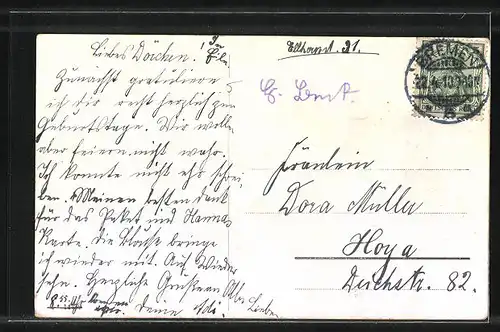 Liebes Döschen.
Zunächst gratuliere
ich dir recht herzlich zum
Geburtstage. Wir wollen
aber feiern nicht wahr.
Ich konnte nicht ehr schrei-
ben. Meinen besten Dank
für das Paket und Hannas
Karte. Die Bluse bringe
ich wieder mit. Auf Wieder
sehn. Herzliche
deine
Ellhornst. 31.
BREMEN
Fräulein
Dora Müller
Hoya
Deichstr. 82.